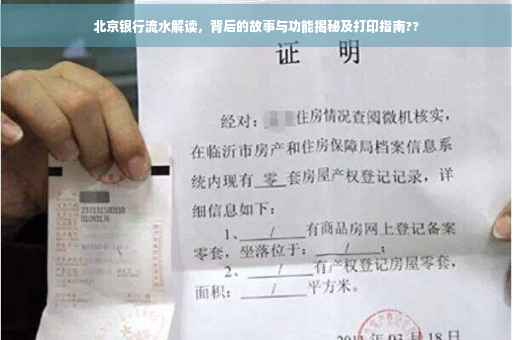 北京银行流水解读，背后的故事与功能揭秘及打印指南??
证 明
经对：住房情况查阅微机核实，
在临沂市房产和住房保障局档案信息系
统内现有 零 套房屋产权登记记录，详
细信息如下：
1、 / 有商品房网上登记备案
零套，坐落位于： / ；
2、 / 有产权登记房屋零套，
面积： / 平方米。
年 03 月 18 日